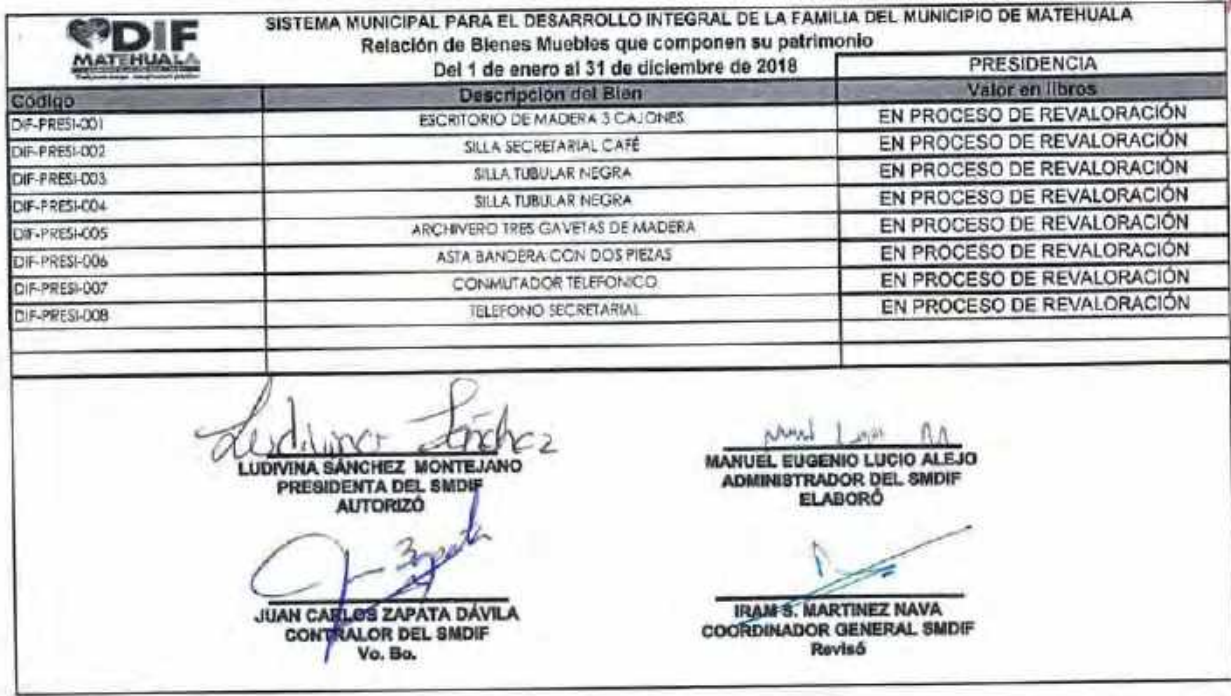 SISTEMA MUNICIPAL PARA EL DESARROLLO INTEGRAL DE LA FAMILIA DEL MUNICIPIO DE MATEHUALA
DIF
MATEHUALA
Relación de Bienes Muebles que componen su patrimonio
Del 1 de enero al 31 de diciembre de 2018 PRESIDENCIA
Código Descripción del Bien Valor en libros
DIF-PRESI-001 ESCRITORIO DE MADERA 3 CAJONES EN PROCESO DE REVALORACIÓN
DIF-PRESI-002 SILLA SECRETARIAL CAFÉ EN PROCESO DE REVALORACIÓN
DIF-PRESI-003 SILLA TUBULAR NEGRA EN PROCESO DE REVALORACIÓN
DIF-PRESI-004 SILLA TUBULAR NEGRA EN PROCESO DE REVALORACIÓN
DIF-PRESI-005 ARCHIVERO TRES GAVETAS DE MADERA EN PROCESO DE REVALORACIÓN
DIF-PRESI-006 ASTA BANDERA CON DOS PIEZAS EN PROCESO DE REVALORACIÓN
DIF-PRESI-007 CONMUTADOR TELEFONICO EN PROCESO DE REVALORACIÓN
DIF-PRESI-008 TELEFONO SECRETARIAL EN PROCESO DE REVALORACIÓN
Ludivina Sánchez
LUDIVINA SÁNCHEZ MONTEJANO
PRESIDENTA DEL SMDIF
AUTORIZÓ
MANUEL EUGENIO LUCIO ALEJO
ADMINISTRADOR DEL SMDIF
ELABORÓ
JUAN CARLOS ZAPATA DÁVILA
CONTRALOR DEL SMDIF
Vo. Bo.
IRAM S. MARTINEZ NAVA
COORDINADOR GENERAL SMDIF
Revisó